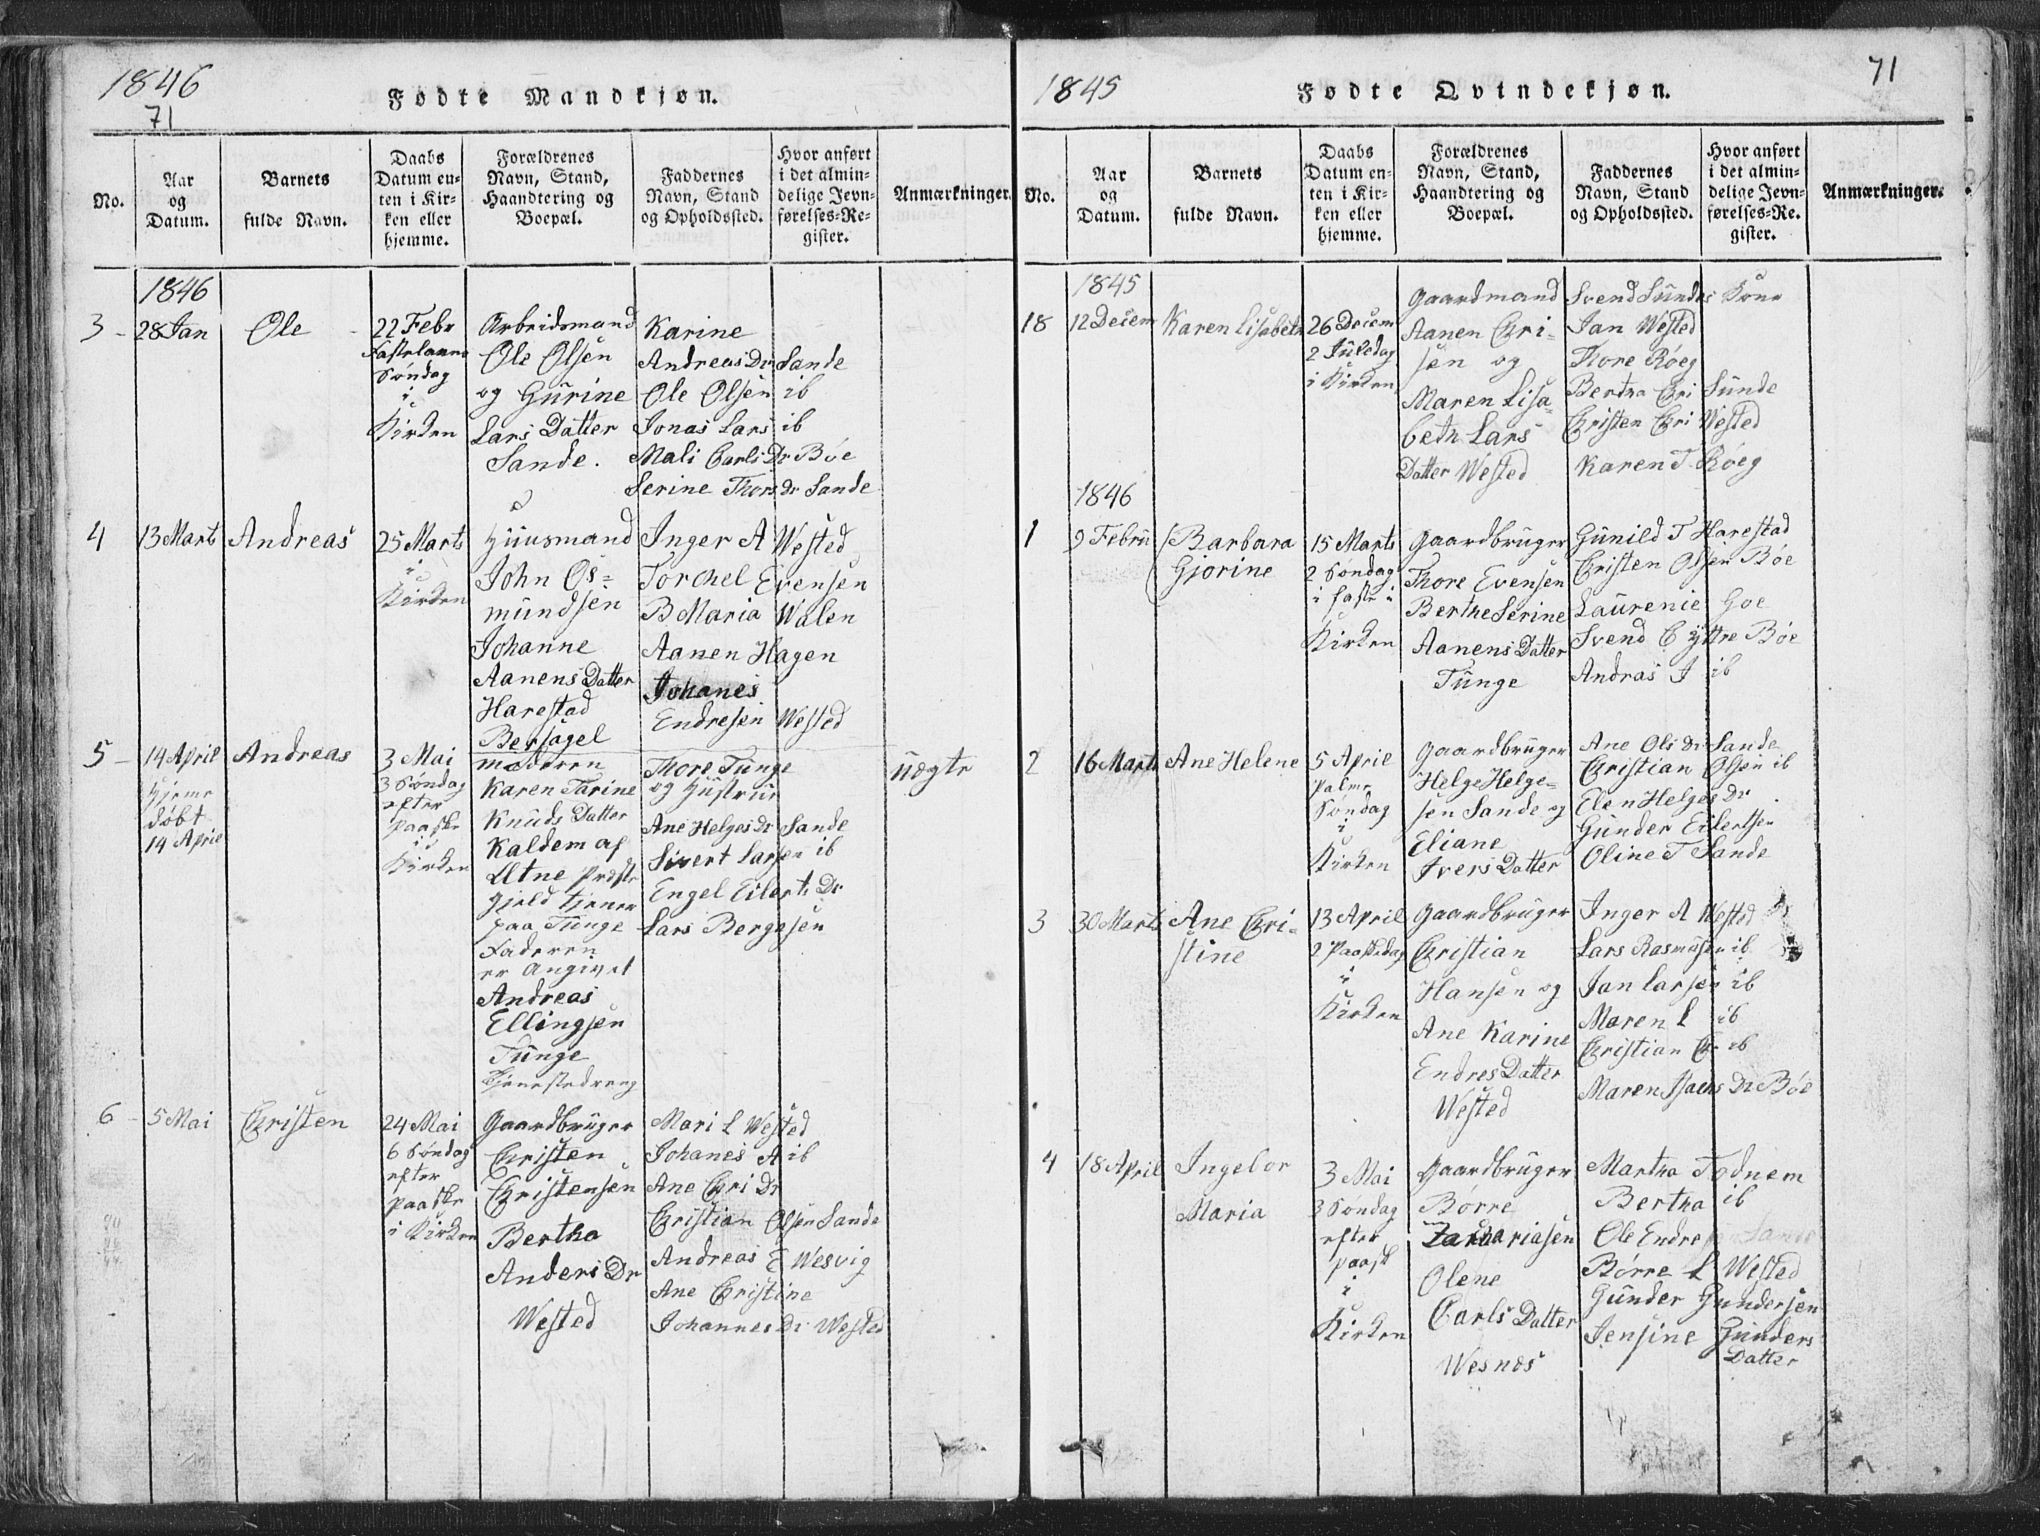 1846
71
Fødte Mandkjøn.
No.
Aar
og
Datum.
Barnets
fulde Navn.
Daabs
Datum en-
ten i Kir-
ken eller
hjemme.
Forældrenes
Navn, Stand,
Haandtering og
Boepæl.
Faddernes
Navn, Stand
og Opholdssted.
Hvor anført
i det almin-
delige Jevn-
førelses-Re-
gister.
Anmærkninger.
1846
3
28 Jan
Ole
22 Febr
Fastelavns
Søndag
i
Kirken
Arbeidsmand
Ole Olsen
og Gurine
Lars Datter
Sande.
Karine
Andreas Dr Sande
Ole Olsen ib
Jonas Lars ib
Mali Carls Dr Bøe
Serine Thors dr Sande
4
13 Marts
Andreas
25 Marts
i
Kirken
Huusmand
John Os=
mundsen
Johanne
Aanens Datter
Harestad
Bersagel
Inger A Wested
Torchel Evensen
B Maria Walen
Aanen Hagen
Johanes
Endresen Wested
5
14 April
Hjeme
døbt
14 April
Andreas
3 Mai
3 Søndag
efter
paaske
i
Kirken
moderen
Karen Tarine
Knuds Datter
Kaldem af
Utne Præste
gjeld tjener
paa Tunge
Faderen
er Angivet
Andreas
Ellingsen
Tunge
tjenestedreng
Thore Tunge
og Hustrue
Ane Helges Dr Sande
Sivert Larsen ib
Engel Eilerts Dr
Lars Bergesen
uægte
6
5 Mai
Christen
24 Mai
6 Søndag
efter
paaske
i Kirken
Gaardbruger
Christen
Christensen
Bertha
Anders Dr
Wested
Mari L Wested
Johanes A ib
Ane Chri Dr
Christian Olsen Sande
Andreas E Wesvig
Ane Christine
Johannes Dr Wested
1845
71
Fødte Qvindekjøn.
No.
Aar
og
Datum.
Barnets
fulde Navn.
Daabs
Datum en-
ten i Kir-
ken eller
hjemme.
Forældrenes
Navn, Stand,
Haandtering og
Boepæl.
Faddernes
Navn, Stand
og Opholdssted.
Hvor anført
i det almin-
delige Jevn-
førelses-Re-
gister.
Anmærkninger.
1845
18
12 Decem
Karen Lisabeth
26 Decem
2 Juledag
i Kirken
Gaardmand
Aanen Chri=
sen og
Maren Lisa=
beth Lars
Datter Wested
Svend Sundes Kone
Jan Wested
Thore Røeg
Bertha Chri Sunde
Christen Chri Wested
Karen T Røeg
1846
1
9 Febru
Barbara
Gjorine
15 Marts
2 Søndag
i faste i
Kirken
Gaardbruger
Thore Evensen
Berthe Serine
Aanens Datter
Tunge
Gunild T Harestad
Christen Olsen Bøe
Laurenie Goe
Svend C yttre Bøe
Andras J ib
2
16 Marts
Ane Helene
5 April
Palme
Søndag
i
Kirken
Gaardbruger
Helge Helge=
sen Sande og
Eliane
Ivers Datter
Ane Ols Dr Sande
Christian Olsen ib
Elen Helges Dr
Gunder Eilertsen
Oline T Sande
3
30 Marts
Ane Chri=
stine
13 April
2 Paaskedag
i
Kirken
Gaardbruger
Christian
Hansen og
Ane Karine
Endres Datter
Wested
Inger A Wested
Lars Rasmusen ib
Jan Larsen ib
Maren L ib
Christian Chr ib
Maren Isachs Dr Bøe
4
18 April
Ingebor
Maria
3 Mai
3 Søndag
efter
paask
i
Kirken
Gaardbruger
Børre
Zachariasen
Olene
Carls Datter
Wesnes
Martha Todnem
Bertha ib
Ole Endresen Sande
Børre L Wested
Gunder Gundersen
Jensine Gunders
Datter